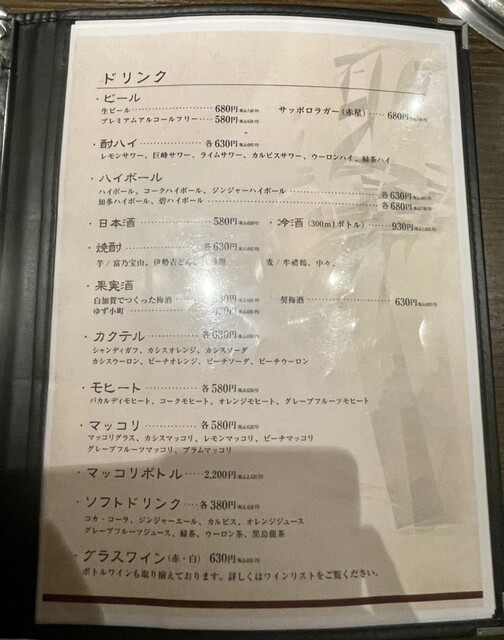 ドリンク
・ビール
生ビール 680円 サッポロラガー(赤星) 680円
プレミアムアルコールフリー 580円
・酎ハイ 各630円
レモンサワー、巨峰サワー、ライムサワー、カルピスサワー、ウーロンハイ、緑茶ハイ
・ハイボール
ハイボール、コークハイボール、ジンジャーハイボール 各630円
知多ハイボール、碧ハイボール 各680円
・日本酒 580円 ・冷酒(300mlボトル) 930円
・焼酎 各630円
芋/富乃宝山、伊勢吉どん、 麦/牟禮鶴、中々、
・果実酒
白加賀でつくった梅酒 契梅酒 630円
ゆず小町
・カクテル 各630円
シャンディガフ、カシスオレンジ、カシスソーダ
カシスウーロン、ピーチオレンジ、ピーチソーダ、ピーチウーロン
・モヒート 各580円
バカルディモヒート、コークモヒート、オレンジモヒート、グレープフルーツモヒート
・マッコリ 各580円
マッコリグラス、カシスマッコリ、レモンマッコリ、ピーチマッコリ
グレープフルーツマッコリ、プラムマッコリ
・マッコリボトル 2,200円
・ソフトドリンク 各380円
コカ・コーラ、ジンジャーエール、カルピス、オレンジジュース
グレープフルーツジュース、緑茶、ウーロン茶、黒烏龍茶
・グラスワイン(赤・白) 630円
ボトルワインも取り揃えております。詳しくはワインリストをご覧ください。